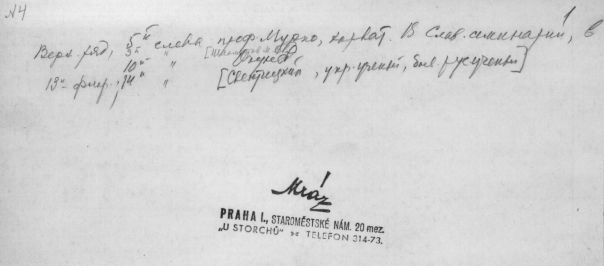 N4
Верх. ряд, 5й слева, проф. Мурко, хорват. В Слав. семинарии, в
10й " Окунев
13я фигура, 14й " [Свенцицкий, укр. ученый, был. рус. ученый]
Mráz
PRAHA I., STAROMĚSTSKÉ NÁM. 20 mez.
„U STORCHŮ" TELEFON 314-73.